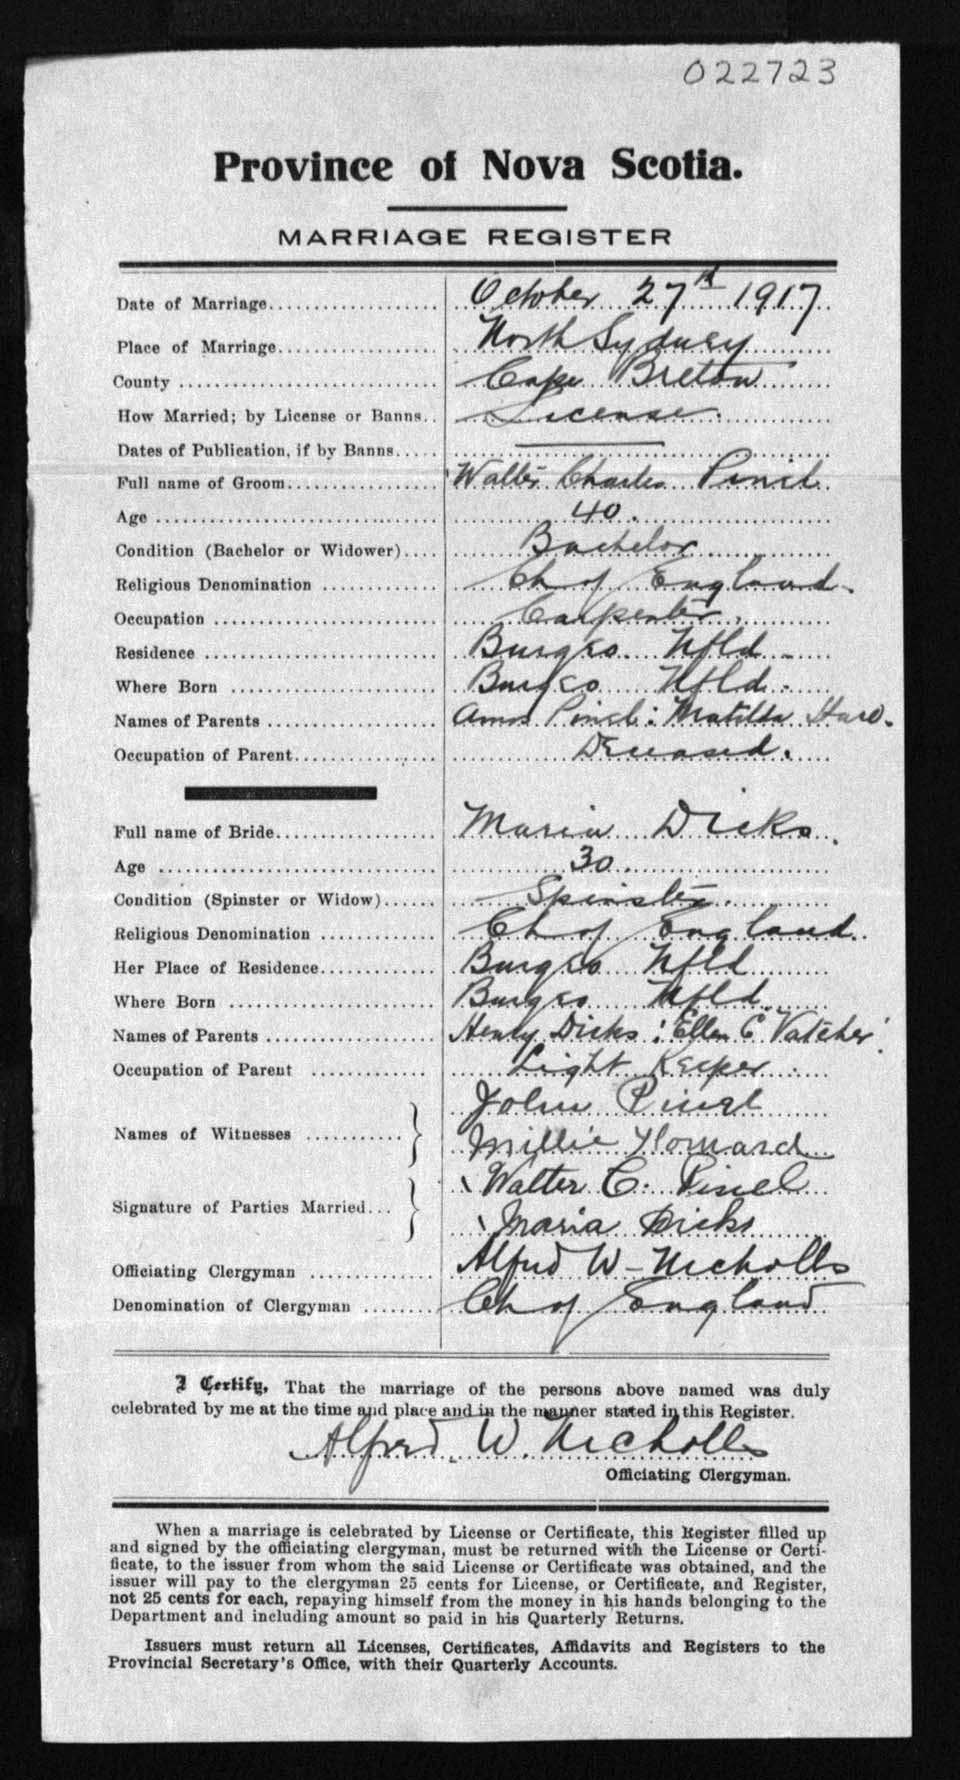 022723
Province of Nova Scotia.
MARRIAGE REGISTER
Date of Marriage October 27th 1917
Place of Marriage North Sydney
County Cape Breton
How Married; by License or Banns License.
Dates of Publication, if by Banns
Full name of Groom Walter Charles Pinel
Age 40.
Condition (Bachelor or Widower) Bachelor
Religious Denomination Ch of England
Occupation Carpenter.
Residence Burgeo Nfld
Where Born Burgeo Nfld.
Names of Parents Amos Pinel: Matilda
Occupation of Parent Deceased.
Full name of Bride Maria Dicks.
Age 30
Condition (Spinster or Widow) Spinster.
Religious Denomination Ch of England
Her Place of Residence Burgeo Nfld
Where Born Burgeo Nfld
Names of Parents Henry Dicks: Ellen C Vatcher
Occupation of Parent Light Keeper
Names of Witnesses John Pinel
Millie Howard
Signature of Parties Married Walter C. Pinel
Maria Dicks
Officiating Clergyman Alfred W-Nicholls
Denomination of Clergyman Ch of England
I Certify, That the marriage of the persons above named was duly
celebrated by me at the time and place and in the manner stated in this Register.
Alfred. W. Nicholls
Officiating Clergyman.
When a marriage is celebrated by License or Certificate, this Register filled up
and signed by the officiating clergyman, must be returned with the License or Certi-
ficate, to the issuer from whom the said License or Certificate was obtained, and the
issuer will pay to the clergyman 25 cents for License, or Certificate, and Register,
not 25 cents for each, repaying himself from the money in his hands belonging to the
Department and including amount so paid in his Quarterly Returns.
Issuers must return all Licenses, Certificates, Affidavits and Registers to the
Provincial Secretary's Office, with their Quarterly Accounts.